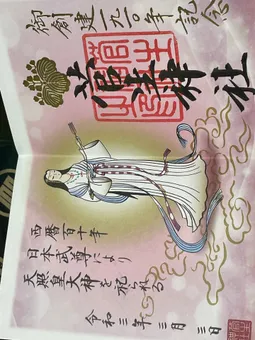 御創建一九一〇年記念
神社
西暦百十年
日本武尊により
天照皇大神を祀られる
令和三年三月三日